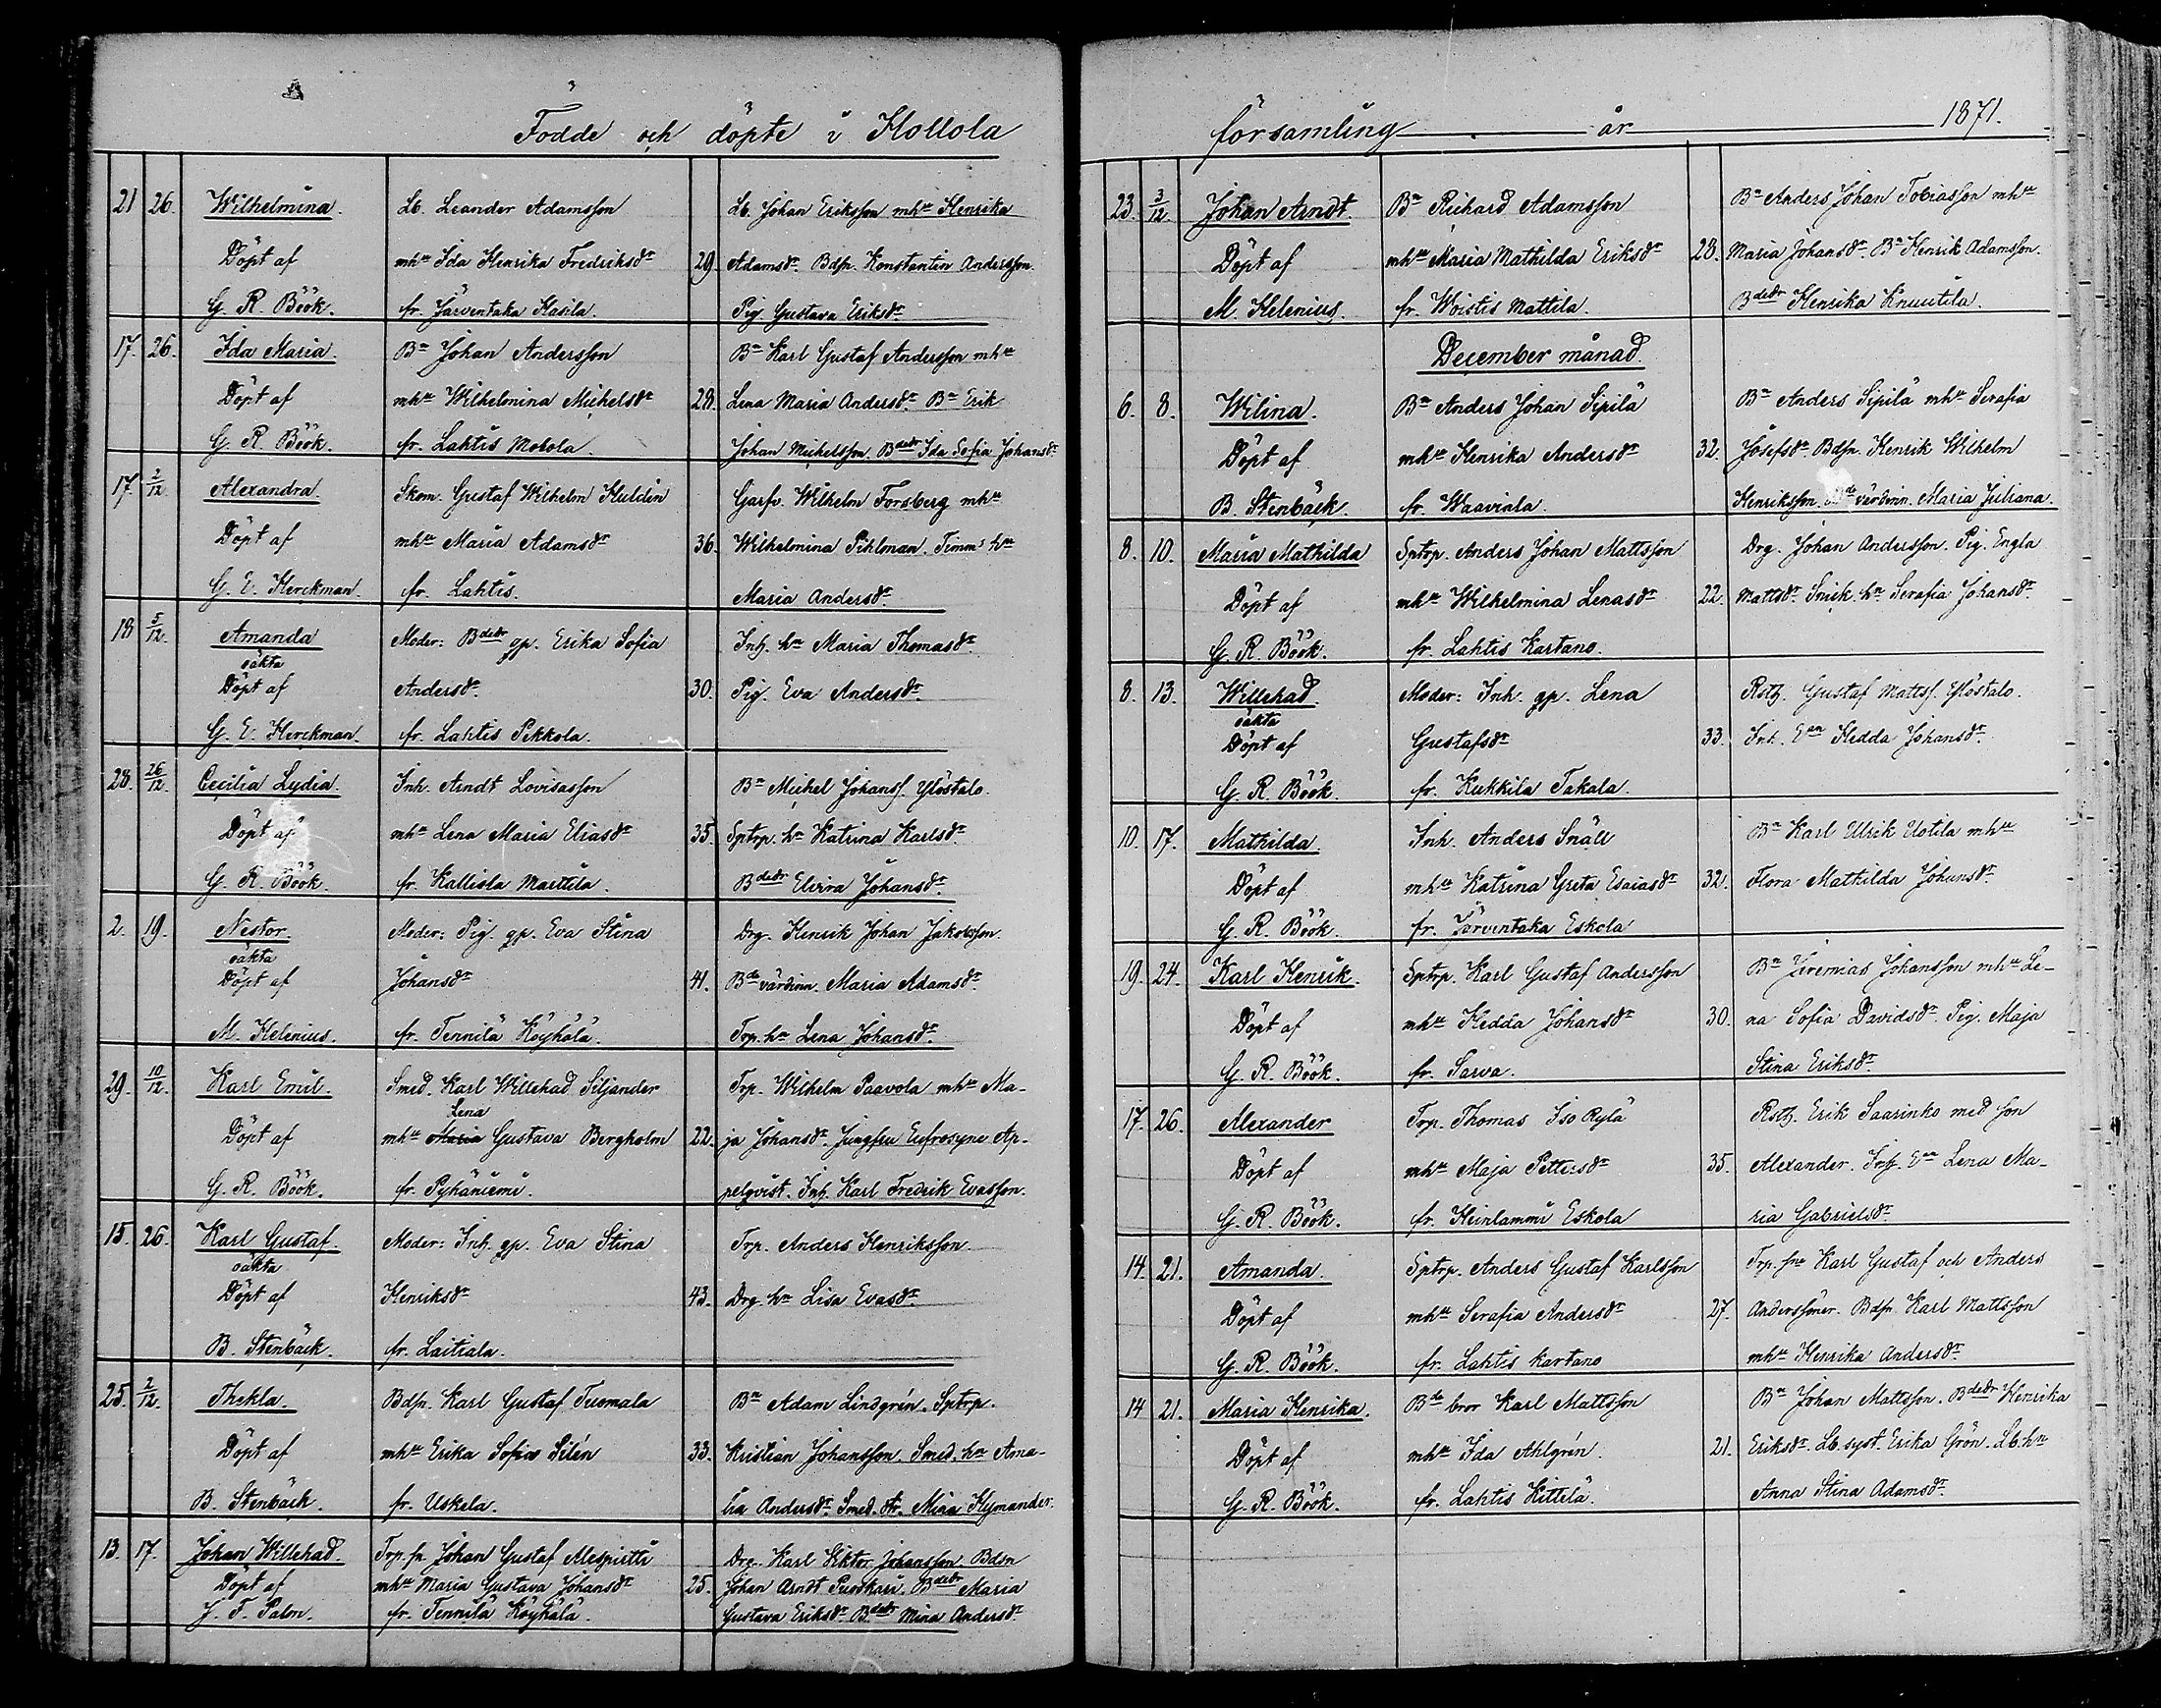 Födde och döpte i Hollola
21 26. Wilhelmina. Lb. Leander Adamsson Lb. Johan Eriksson mhu Henrika
Döpt af mhu Ida Henrika Fredriksdr 29. Adamsdr. Bdsn. Konstantin Andersson.
G. R. Böök. fr. Järventaka Hasila. Pig. Gustava Eriksdr.
17. 26. Ida Maria. Bn Johan Andersson Bn Karl Gustaf Andersson mhu
Döpt af mhu Wilhelmina Michelsdr 28. Lena Maria Andersdr. Bn Erik
G. R. Böök. fr. Lahtis Mokola. Johan Michelsson. Bdedr Ida Sofia Johansdr
17. 2/12. Alexandra. Skom. Gustaf Wilhelm Huldin Garfv. Wilhelm Forsberg mhu
Döpt af mhu Maria Adamsdr 36. Wilhelmina Pihlman. Timm: hu
G. E. Herckman. fr. Lahtis. Maria Andersdr.
18 5/12. Amanda Moder: Bdedr gp. Erika Sofia Inh. hu Maria Thomasdr.
oäkta
Döpt af Andersdr. 30. Pig. Eva Andersdr.
G. E. Herckman. fr. Lahtis Pekkola.
28. 26/12. Cecilia Lydia. Inh. Arndt Lovisasson Bn Michel Johanss. Ylöstalo.
Döpt af mhu Lena Maria Eliasdr 35. Sptrp. hu Katrina Karlsdr.
G. R. Böök. fr. Kalliola Marttila. Bdedr Elvira Johansdr.
2. 19. Nestor. Moder: Pig. gp. Eva Stina Drg. Henrik Johan Jakobsson.
oäkta
Döpt af Johansdr 41. Bde värdinn. Maria Adamsdr.
M. Helenius. fr. Tennilä Köyhälä. Trp. hu Lena Johansdr.
29. 10/12. Karl Emil. Smed. Karl Willehad Siljander Trp. Wilhelm Paavola mhu Ma-
Lena
Döpt af mhu Maria Gustava Bergholm 22. ja Johansdr. Jungfru Eufrosyne Ap-
G. R. Böök. fr. Pyhäniemi. pelqvist. Inh. Karl Fredrik Evasson.
15. 26. Karl Gustaf. Moder: Inh. gp. Eva Stina Trp. Anders Henriksson.
oäkta
Döpt af Henriksdr 43. Drg. hu Lisa Evasdr.
B. Stenbäck. fr. Laitiala.
25. 2/12. Thekla. Bdsn. Karl Gustaf Tuomala Bn Adam Lindgrén. Sptrp.
Döpt af mhu Erika Sofia Silén 33. Kristian Johansson. Smed. hu Ama-
B. Stenbäck. fr. Uskela. lia Andersdr. Smed. dr. Mina Hymander.
13. 17. Johan Willehad. Trp. sn Johan Gustaf Alespirtti Drg. Karl Viktor Johansson. Bdsn
Döpt af mhu Maria Gustava Johansdr 25. Johan Arndt Puoskari. Bdedr Maria
J. F. Palon. fr. Tennilä Köyhälä. Gustava Eriksdr. Bdedr Mina Andersdr.
församling år 1871.
23. 3/12. Johan Arndt. Bn Richard Adamsson Bn Anders Johan Tobiasson mhu
Döpt af mhu Maria Mathilda Eriksdr 28. Maria Johansdr. Bn Henrik Adamsson.
M. Helenius. fr. Woistis Mattila. Bdedr Henrika Knuutila.
December månad.
6. 8. Wilina. Bn Anders Johan Sipilä Bn Anders Sipilä mhu Serafia
Döpt af mhu Henrika Andersdr 32. Josefsdr. Bdsn. Henrik Wilhelm
B. Stenbäck. fr. Waaviola. Henriksson. Bde värdinn. Maria Juliana.
8. 10. Maria Mathilda Sptrp. Anders Johan Mattsson Drg. Johan Andersson. Pig. Engla
Döpt af mhu Wilhelmina Lenasdr 22. Mattsdr. Snick. hu Serafia Johansdr.
G. R. Böök. fr. Lahtis Kartano.
8. 13. Willehad. Moder: Inh. gp. Lena Rsth. Gustaf Mattss. Ylöstalo.
oäkta
Döpt af Gustafsdr 33. Inh. Ean Hedda Johansdr.
G. R. Böök. fr. Kukkila Takala.
10. 17. Mathilda. Inh. Anders Snäll Bn Karl Ulrik Uotila mhu
Döpt af mhu Katrina Greta Esaiasdr 32. Flora Mathilda Johansdr.
G. R. Böök. fr. Järventaka Eskola
19. 24. Karl Henrik. Sptrp. Karl Gustaf Andersson Bn Jeremias Johansson mhu Le-
Döpt af mhu Hedda Johansdr 30. na Sofia Davidsdr. Pig. Maja
G. R. Böök. fr. Sarva. Stina Eriksdr.
17. 26. Alexander Trp. Thomas Iso Rylä Rsth. Erik Saarinko med son
Döpt af mhu Maja Pettersdr 35. Alexander. Inh. Ean Lena Ma-
G. R. Böök. fr. Heinlammi Eskola ria Gabrielsdr.
14. 21. Amanda. Sptrp. Anders Gustaf Karlsson Trp. sne Karl Gustaf och Anders
Döpt af mhu Serafia Andersdr 27. Anderssöner. Bdsn. Karl Mattsson
G. R. Böök. fr. Lahtis Kartano mhu Henrika Andersdr.
14 21. Maria Henrika. Bde bror Karl Mattsson Bn Johan Mattsson. Bdedr Henrika
Döpt af mhu Ida Ahlgrén. 21. Eriksdr. Lb. syst. Erika Grön. Lb. hu
G. R. Böök. fr. Lahtis Kittelä. Anna Stina Adamsdr.